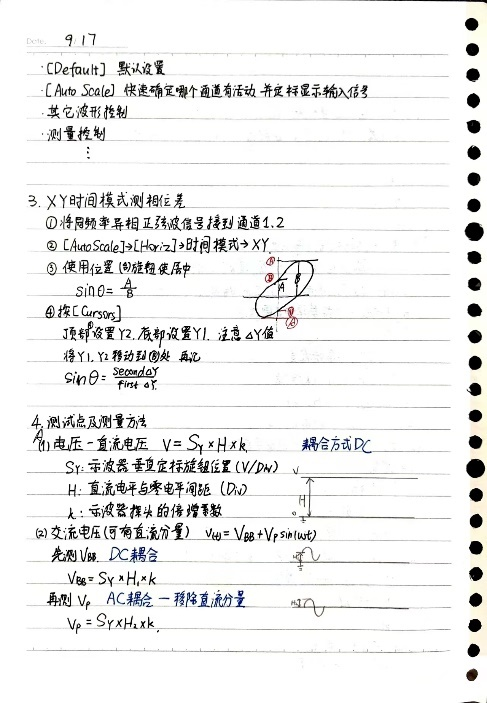 Date. 9.17
·[Default] 默认设置
·[Auto Scale] 快速确定哪个通道有活动 并定标显示输入信号
·其它波形控制
·测量控制
⋮
3. XY时间模式测相位差
①将同频率异相正弦波信号接到通道1.2
②[AutoScale]→[Horiz]→时间模式→XY.
③ 使用位置(⇕)旋钮使居中
sinθ = A/B
④按[Cursors]
顶部设置Y2. 底部设置Y1. 注意△Y值
将Y1, Y2移动到②处 再记
sinθ = second△Y / first △Y.
4. 测试点及测量方法
(1) 电压 - 直流电压 V = Sy × H × k. 耦合方式DC
Sy: 示波器垂直定标旋钮位置 (V/Div)
H: 直流电平与零电平间距 (Div)
k: 示波器探头的倍增系数
(2) 交流电压(可有直流分量) V(t) = VBB + Vp sin(ωt)
先测VBB. DC耦合
VBB = Sy × H₁ × k
再测 Vp AC耦合 — 移除直流分量
Vp = Sy × H₂ × k.